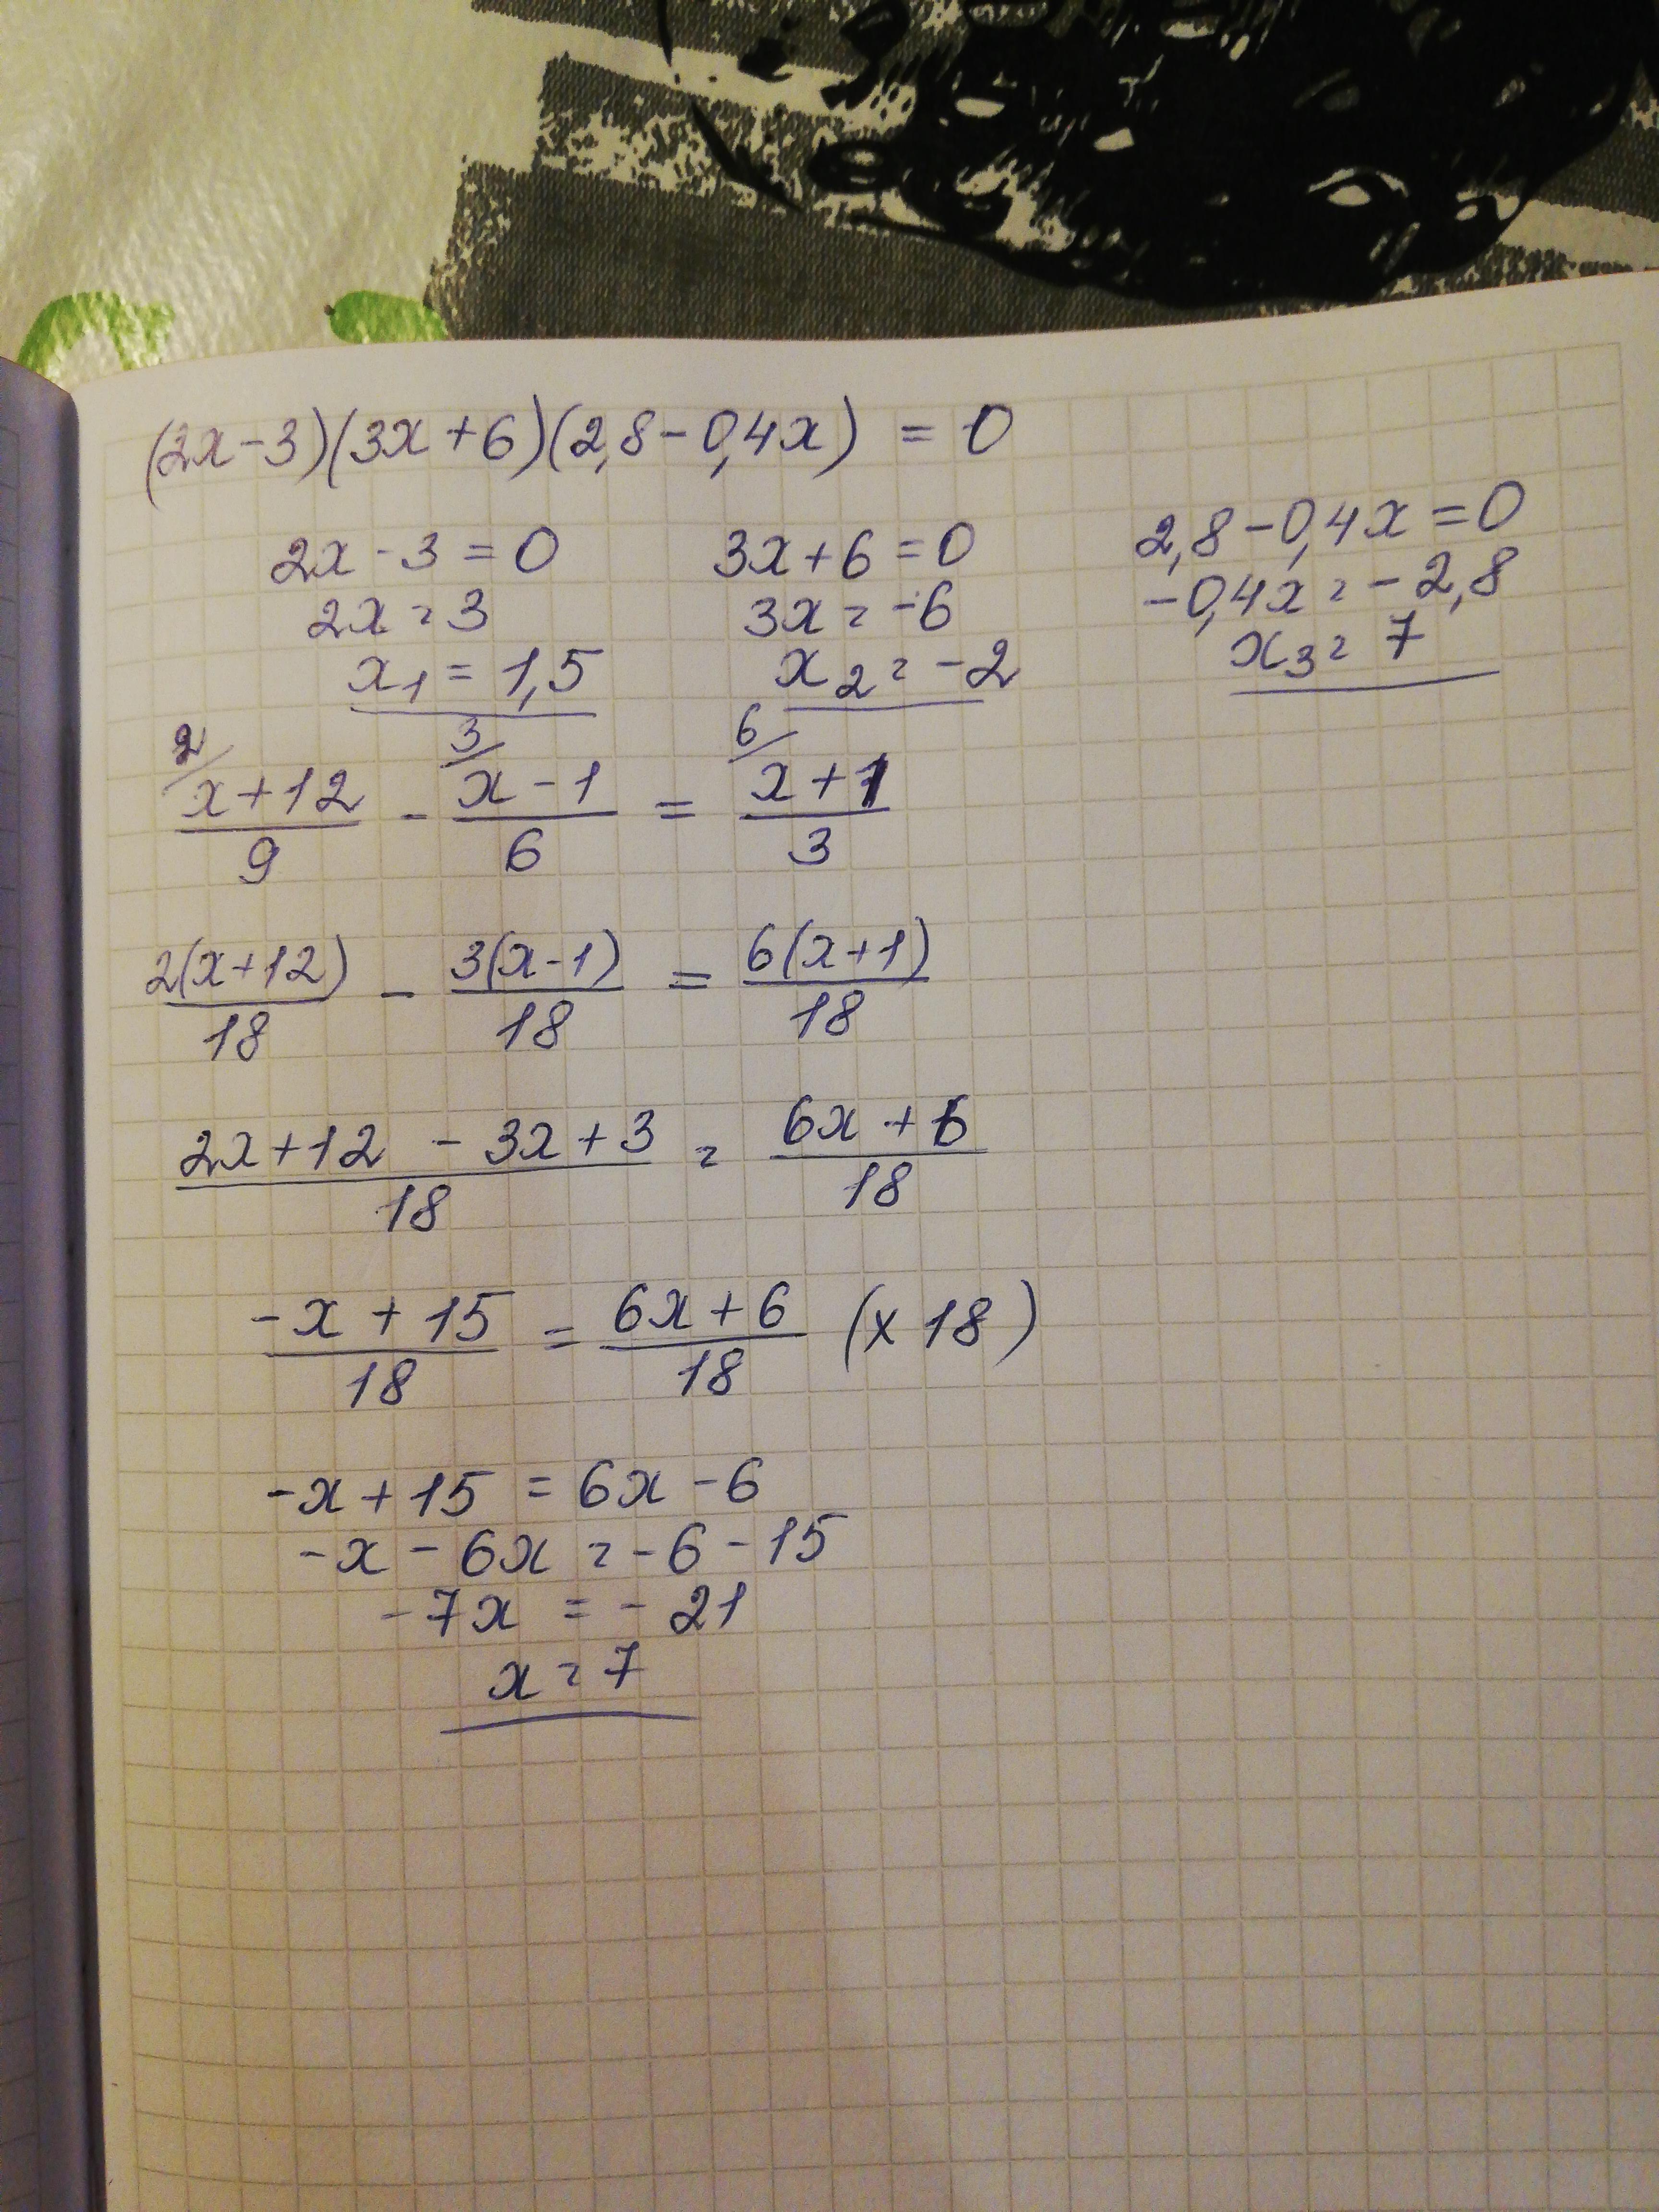 (2x-3)(3x+6)(2,8-0,4x) = 0
2x-3=0 3x+6=0 2,8-0,4x=0
2x=3 3x=-6 -0,4x=-2,8
x₁=1,5 x₂=-2 x₃=7
2/ 3/ 6/
(x+12)/9 - (x-1)/6 = (x+1)/3
2(x+12)/18 - 3(x-1)/18 = 6(x+1)/18
(2x+12 - 3x+3)/18 = (6x+6)/18
(-x+15)/18 = (6x+6)/18 (×18)
-x+15 = 6x-6
-x-6x=-6-15
-7x = -21
x=7